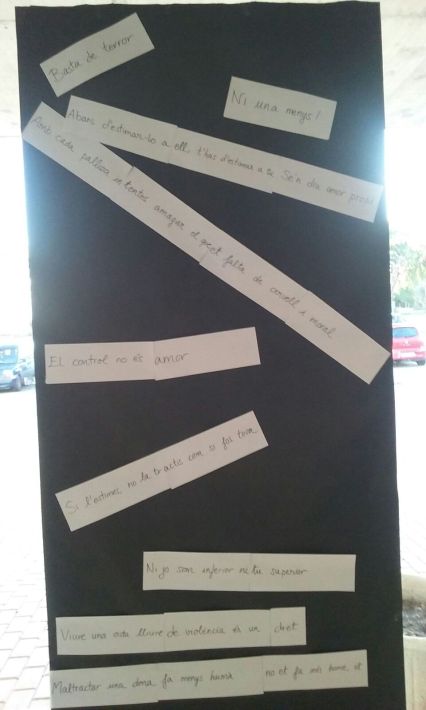 Basta de terror
Ni una menys!
Abans d'estimar-lo a ell, t'has d'estimar a tu. Se'n diu amor propi
Amb cada pallissa intentes amagar el greet falta de cervell i moral
El control no és amor
Si l'estimes no la tractis com si fos teva
Ni jo sóm inferior ni tu superior
Viure una vida lliure de violència és un dret
Maltractar una dona fa menys humà no et fa més home, et